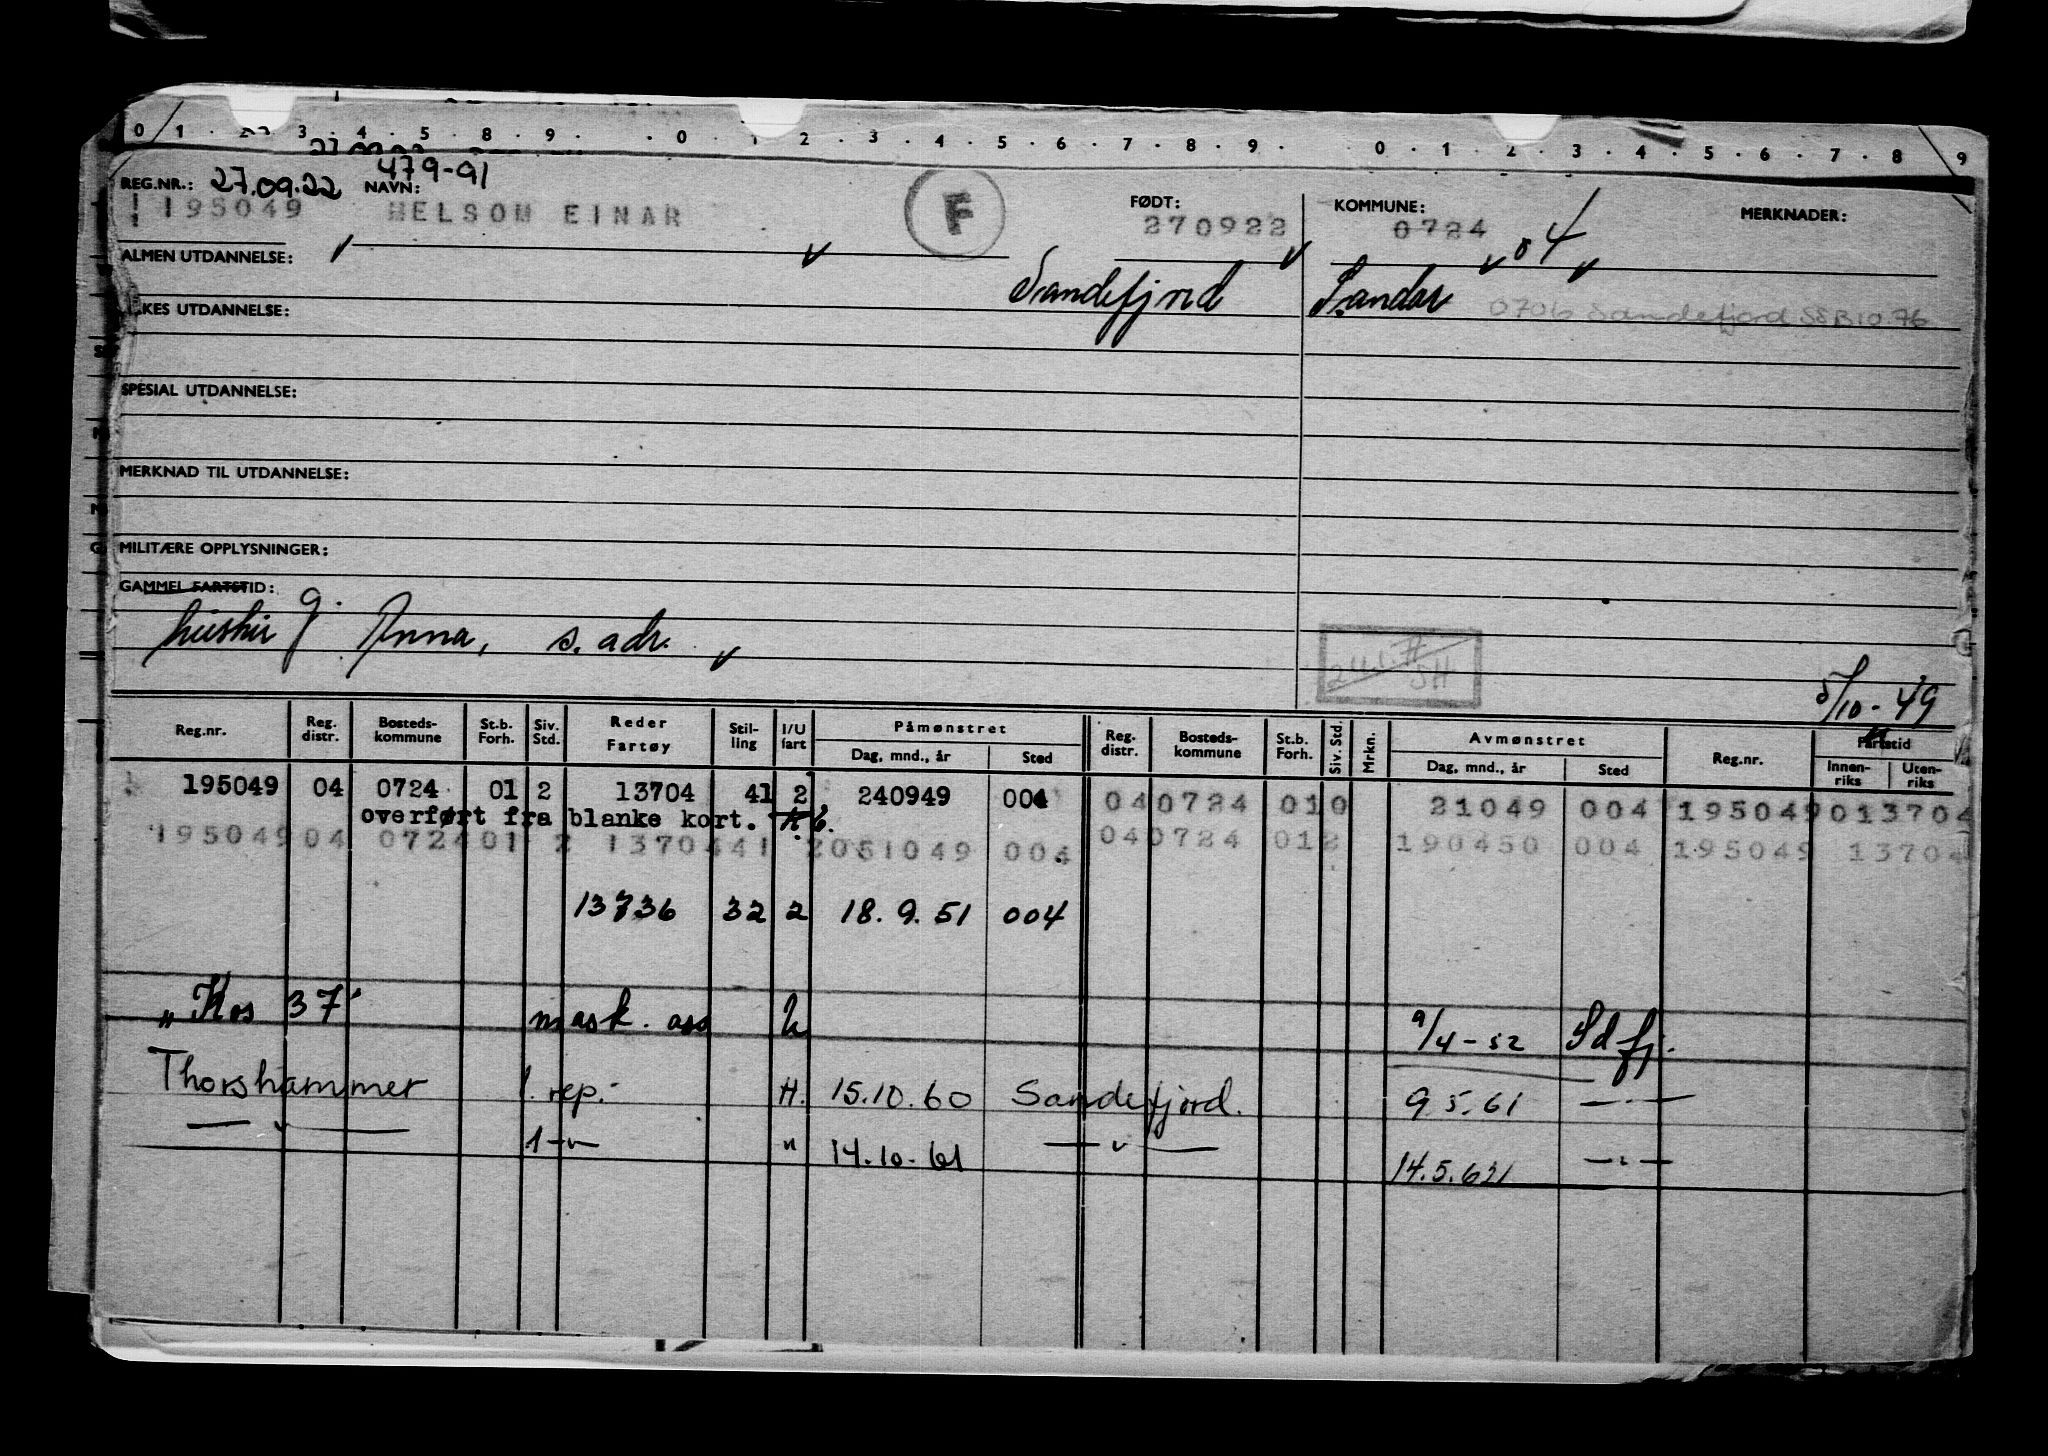 0 1 . 2 . 3 . 4 . 5 . 8 . 9 . . 0 . 1 . 2 . 3 . 4 . 5 . 6 . 7 . 8 . 9 . . 0 . 1 . 2 . 3 . 4 . 5 . 6 . 7 . 8 9
479-91
REG.NR.: 27.09.22 NAVN: F FØDT: KOMMUNE: MERKNADER:
195049 MELSOM EINAR 270922 0724 04
ALMEN UTDANNELSE:
Sandefjord Sandar 0706 Sandefjord SSB 10.76
UTDANNELSE:
SPESIAL UTDANNELSE:
MERKNAD TIL UTDANNELSE:
MILITÆRE OPPLYSNINGER:
GAMMEL FARTSTID:
hustru g. Anna, s. adr.
5/10-49
Reg.nr. Reg. distr. Bosteds-kommune St.b. Forh. Siv. Std. Reder Fartøy Stil-ling I/U fart Påmønstret Dag, mnd., år Sted Reg. distr. Bosteds-kommune St.b. Forh. Siv. Std. Mrkn. Avmønstret Dag, mnd., år Sted Reg.nr. Fartstid Innen-riks Uten-riks
195049 04 0724 01 2 13704 41 2 240949 004 04 0724 01 0 21049 004 195049 013704
overført fra blanke kort.
195049 04 0724 01 2 13704 41 2 051049 004 04 0724 01 2 190450 004 195049 13704
13736 32 2 18.9.51 004
"Kos 37" mask. ass U 9/4-52 Sdfj.
Thorshammer 1. rep. H. 15.10.60 Sandefjord. 9 5.61 — " —
— " — 1 — " — " 14.10.61 — " — 14.5.62 — " —